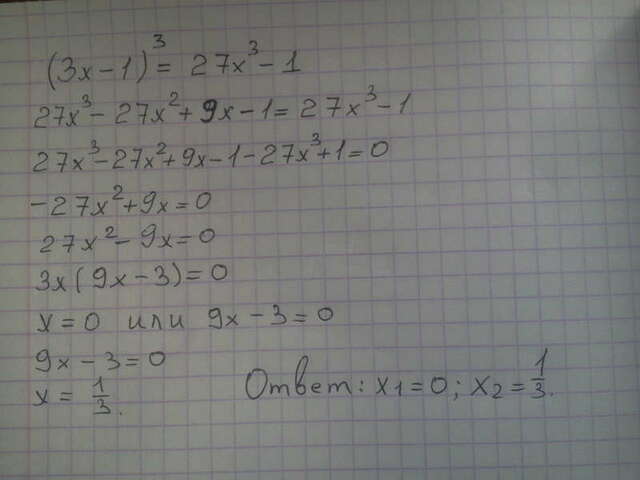 (3x-1)³ = 27x³ - 1
27x³ - 27x² + 9x - 1 = 27x³ - 1
27x³ - 27x² + 9x - 1 - 27x³ + 1 = 0
-27x² + 9x = 0
27x² - 9x = 0
3x(9x - 3) = 0
x = 0 или 9x - 3 = 0
9x - 3 = 0
x = 1/3. Ответ: x₁ = 0; x₂ = 1/3.